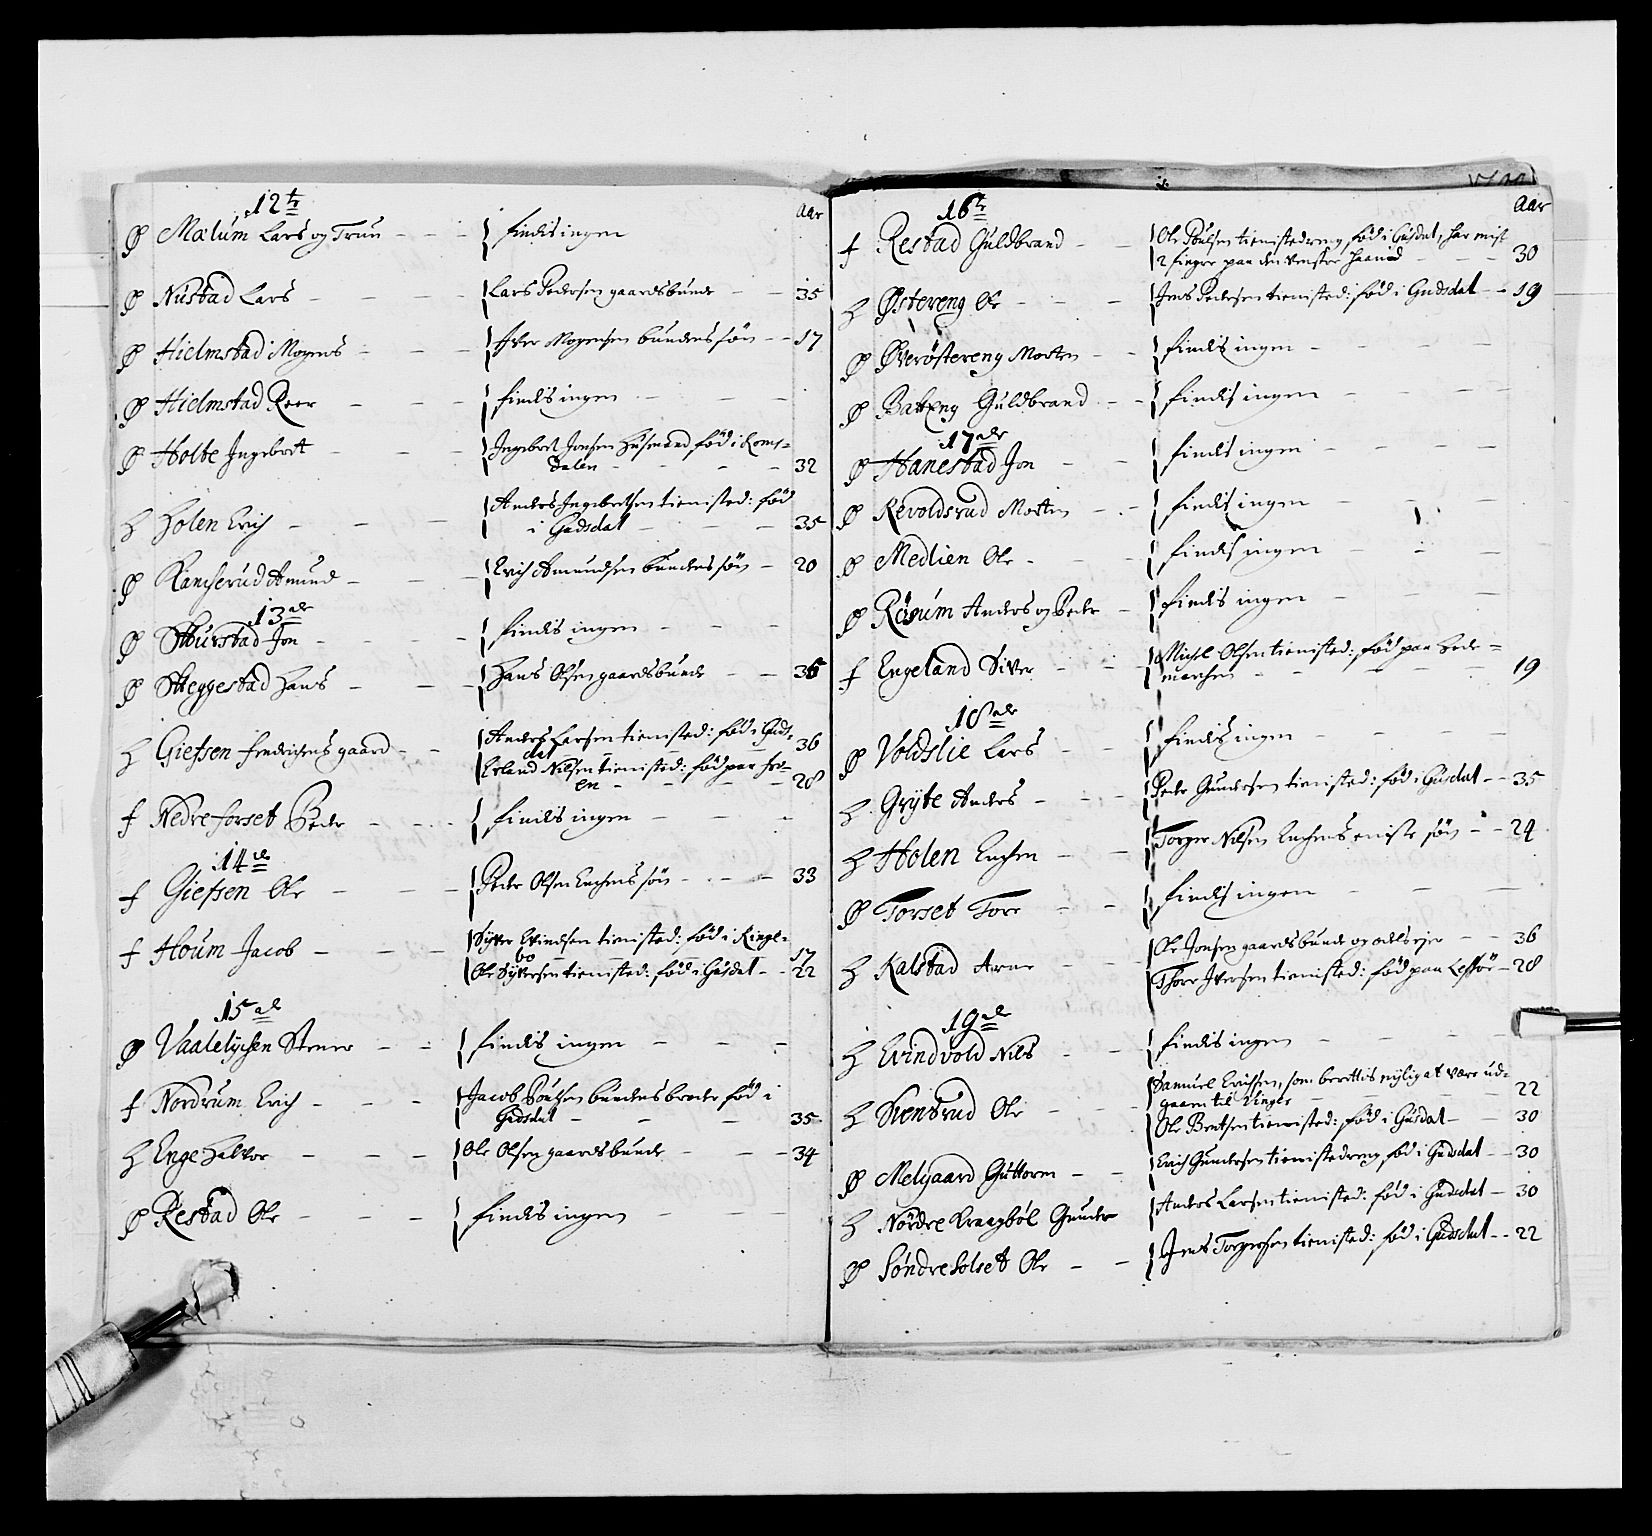 12te
Aar
Ø Mælum Lars og Truu - - - findis ingen
Ø Nustad Lars - - - Lars Pedersen gaardsbunde - - 35
Ø Hielmstad Mogens - - - Iver Mogensen bundens søn - - 17
Ø Hielmstad Roer - - - findis ingen - - -
Ø Holte Ingebret - - - Ingebret Jonsen Husmand, fød i Roms-
dalen - - - - 32
H Holen Erich - - - Anders Ingebretsen tienisted: fød
i Gudsdal - - - 35
Ø Ramserud Amund - - - Erich Amundsen bundens søn - 20
13de
Ø Skurstad Jon - - - findis ingen - - -
Ø Skeggestad Hans - - - Hans Olsen gaardsbunde - - 36
H Giefsen fendrichens gaard - - Anders Larsen tienisted: fød i Guds-
dal - - - 36
Erland Nilsen tienisted: fød paa Fro-
en - - - - 28
f Nedre forset Peder - - - findis ingen - - -
14de
f Giefsen Ole - - - Peder Olsen Enchens søn - - - 33
f Houm Jacob - - - Syver Evindsen tienisted: fød i Ringe-
bo - - - 17
Ole Syversen tienisted: fød i Gusdal - - 22
15de
Ø Vaalelychen Stener - - findis ingen - - -
f Nordrum Erich - - - Jacob Poulsen bundens broder fød i
Gudsdal - - - 35
H Enge Halvor - - - Ole Olsen gaardsbunde - - - 34
Ø Restad Ole - - - findis ingen - - -
Aar
16de
f Restad Guldbrand - - Ole Poulsen tienistedreng, fød i Gusdal, har mist
2 finger paa den venster haand - - - 30
H Østereng Ole - - - Jens Pedersen tienisted: fød i Gudsdal - - 19
Ø Øverøstereng Morten - - findis ingen - - -
Ø Batteng Guldbrand - - findis ingen - - -
17de
Ø Hanestad Jon - - findis ingen - - -
Ø Revoldsrud Morten - - findis ingen - - -
Ø Medlien Ole - - - findis ingen - - -
Ø Rosum Anders og Peder - findis ingen - - -
f Engeland Siver - - - Michel Olsen tienisted: fød paa Hede-
marchen - - - - 19
18de
Ø Voldslie Lars - - findis ingen - - -
H Gryte Anders - - - Peder Gundersen tienisted: fød i Gusdal - - 35
H Holen Enchen - - Torger Nilsen Enchens eniste søn - - 24
Ø Torset Tore - - findis ingen - - -
H Kalstad Arne - - - Ole Jonsen gaardsbunde og odelsejer - - 36
Thore Iversen tienisted: fød paa Lessøe - 28
19de
H Evindvold Nils - - findis ingen - - -
H Svendrud Ole - - - Samuel Erichsen, som berettis nylig at være ud-
gaaen til Ringer - - - - 22
Ole Bentsen tienisted: fød i Gusdal - - 30
Ø Melgaard Guttorm - - Erich Gundersen tienistedreng, fød i Gudsdal - - 30
H Nordre Kraagbøl Gunder Anders Larsen tienisted: fød i Gudsdal - 30
Ø Søndre Solset Ole - - Jens Torgersen tienisted: fød i Gudsdal - - 22